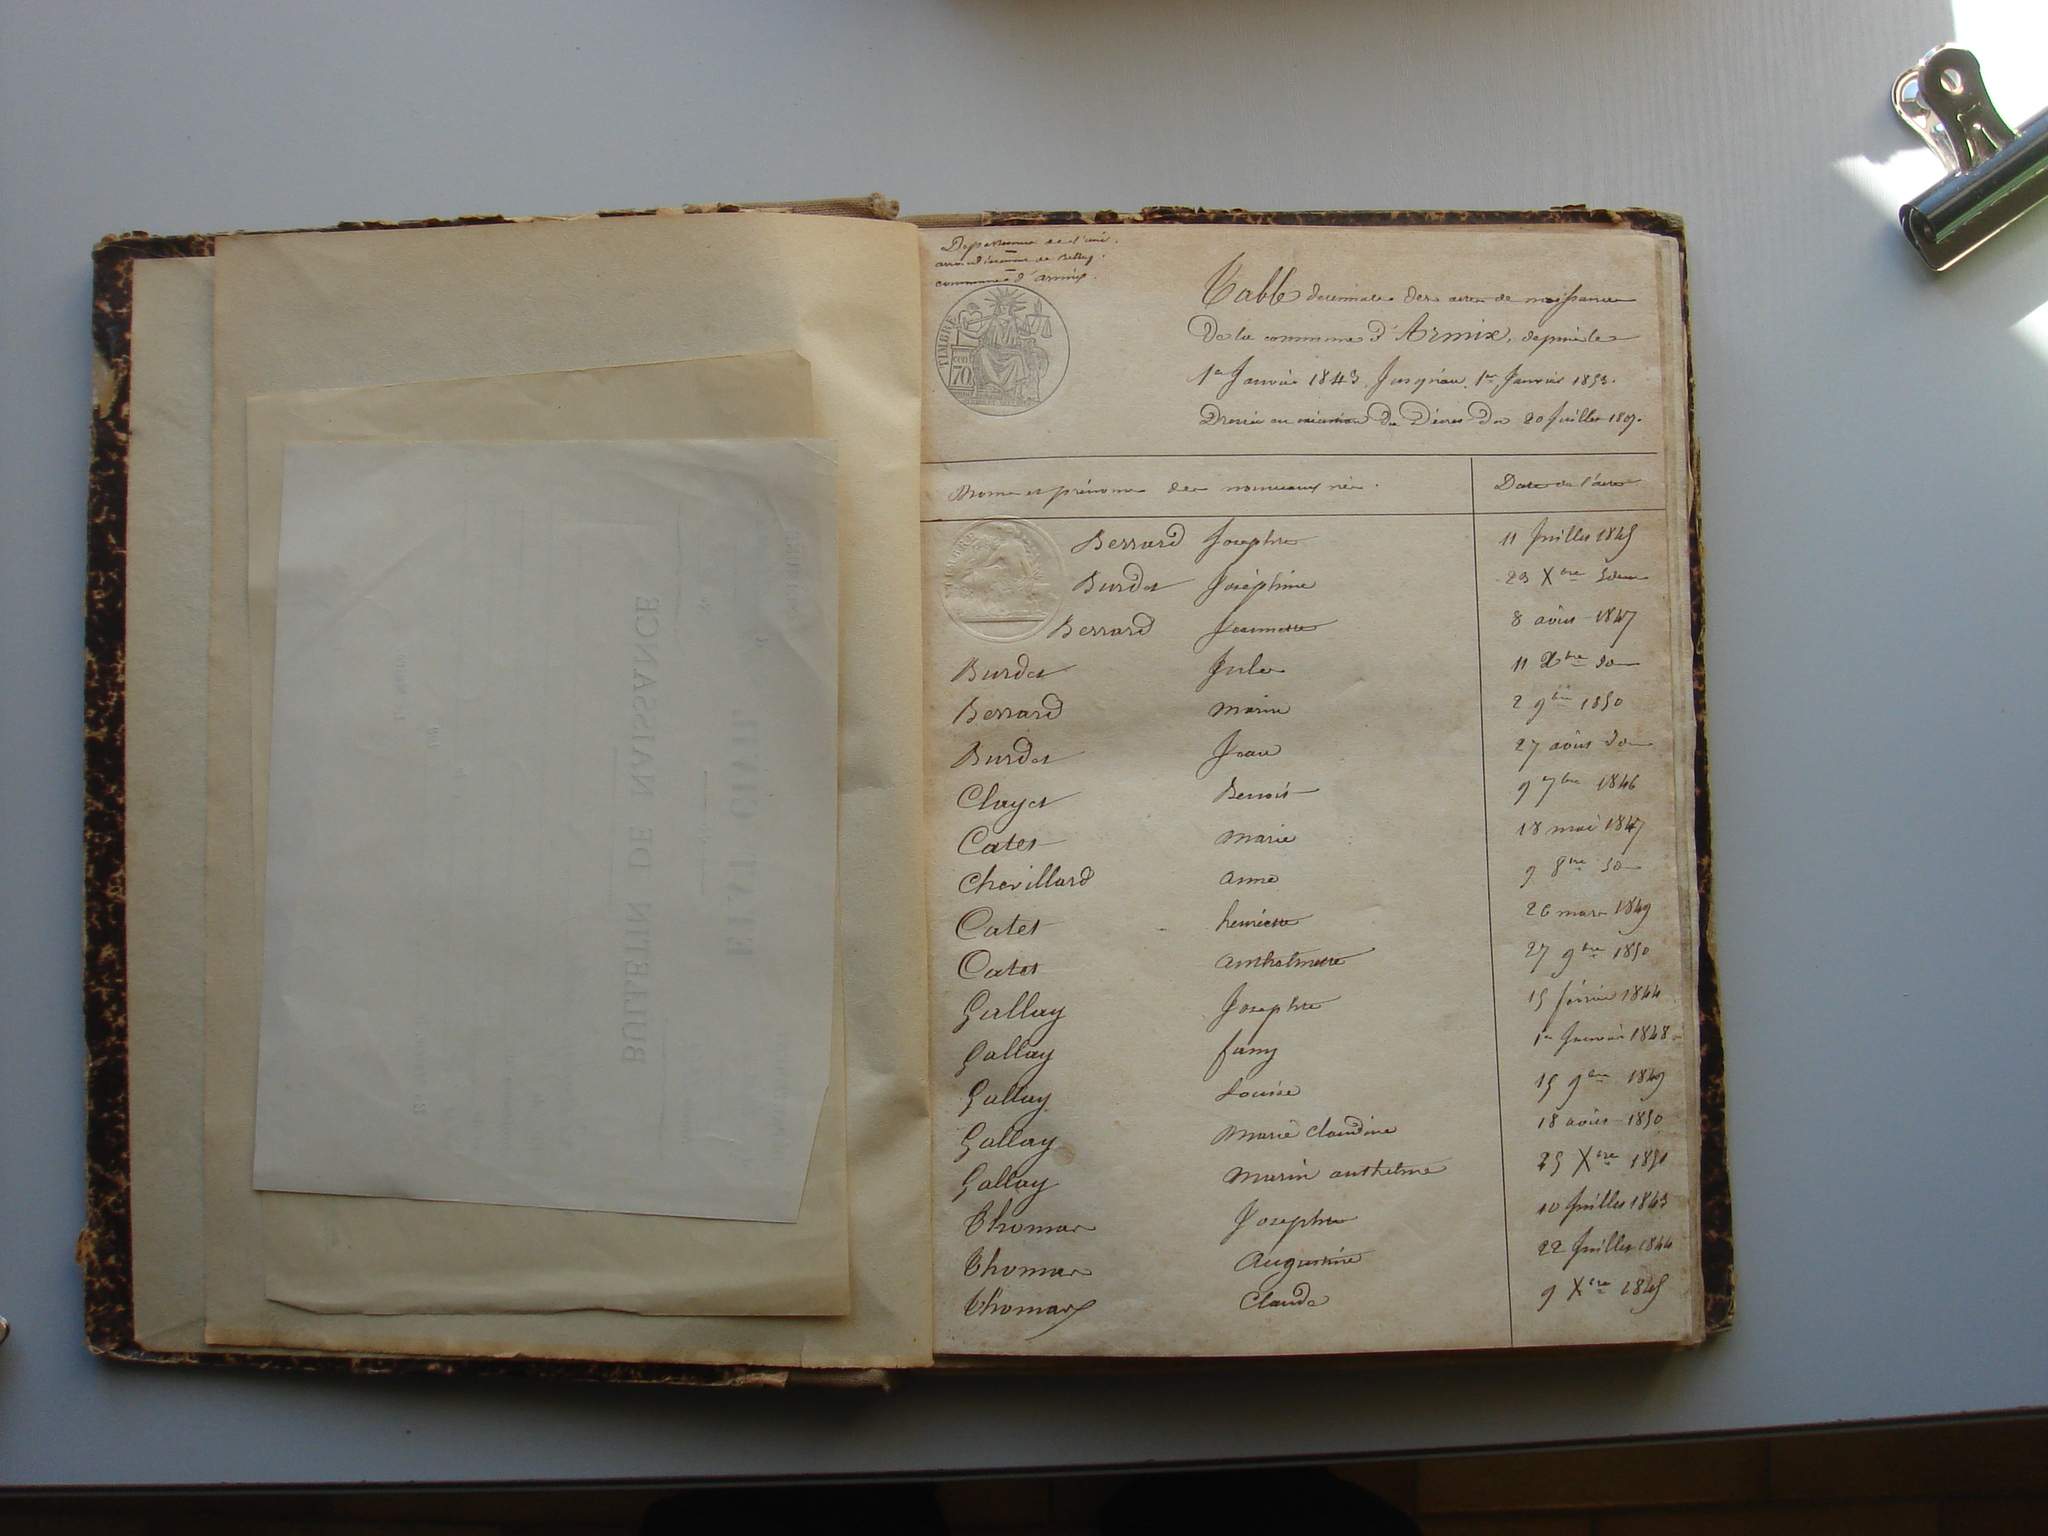 Département de l'ain.
arrondissement de Belley.
commune d'armix.
TIMBRE
cen
70
Table décennale des actes de naissance
De la commune d'Armix, depuis le
1er Janvier 1843 Jusqu'au 1er Janvier 1853.
Dressée en exécution Du Décret Du 20 Juillet 1807.
Noms et prénoms des nouveaux nés. Date de l'acte
Berrard Josephte 11 Juillet 1845
Burdet Joséphine 23 Xbre Idem
Berrard Jeannette 8 août 1847
Burdet Jules 11 Xbre Id
Berrard marie 2 9bre 1850
Burdet Jean 27 août Id
Clayet Benoit 9 7bre 1846
Catet marie 18 mai 1847
Chevillard anne 9 8bre Id
Catet henriette 26 mars 1849
Catet anthelmette 27 9bre 1850
Gallay Josephte 15 février 1844
Gallay fany 1er Janvier 1848
Gallay Louise 15 9bre 1849
Gallay Marie Claudine 18 août 1850
Gallay Marin anthelme 25 Xbre 1851
Thomas Josephte 10 Juillet 1843
Thomas Augustine 22 Juillet 1844
Thomas Claude 9 Xbre 1845
ETAT CIVIL
BULLETIN DE NAISSANCE